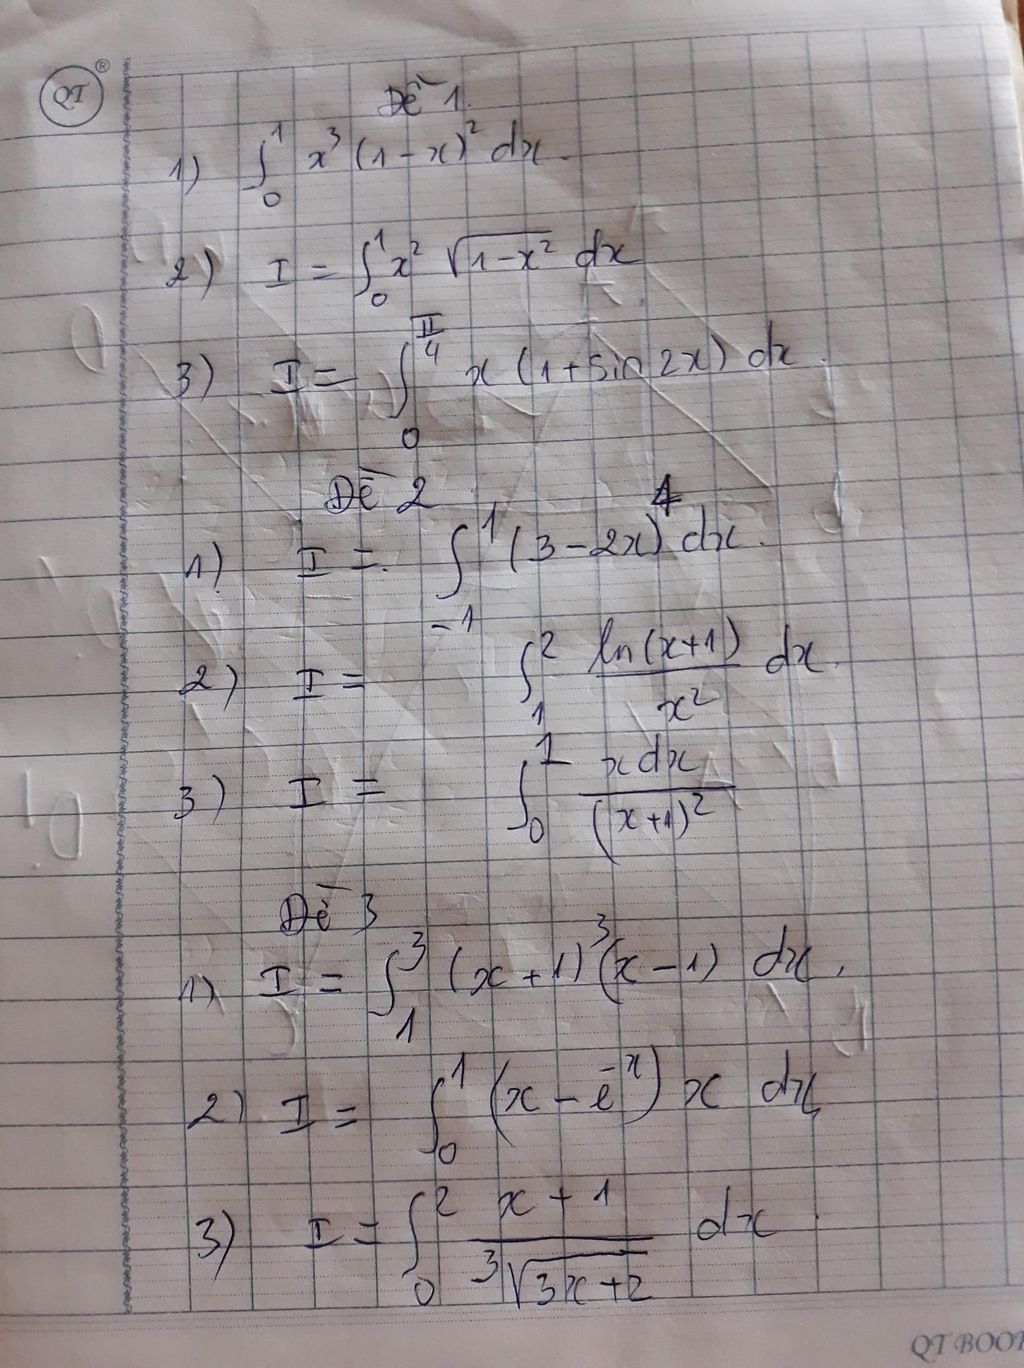 QT ®
Đề 1.
1) ∫₀¹ x³ (1-x)² dx.
2) I = ∫₀¹ x² √(1-x²) dx
3) I = ∫₀^(π/4) x (1+sin 2x) dx.
Đề 2
1) I = ∫₋₁¹ (3-2x)⁴ dx.
2) I = ∫₁² ln(x+1)/x² dx.
3) I = ∫₀¹ x dx/(x+1)²
Đề 3
1) I = ∫₁³ (x+1)³(x-1) dx.
2) I = ∫₀¹ (x - e⁻ˣ) x dx
3) I = ∫₀² (x+1)/∛(3x+2) dx.